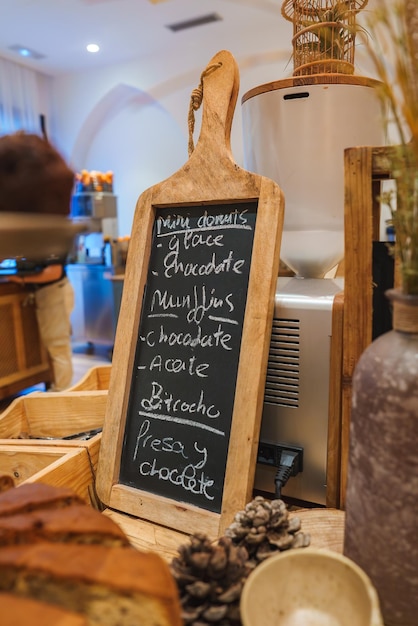 Mini donuts
- glace
- chocolate
Munffins
- chocolate
- Aceite
Bitrocho
Presa y
chocolate